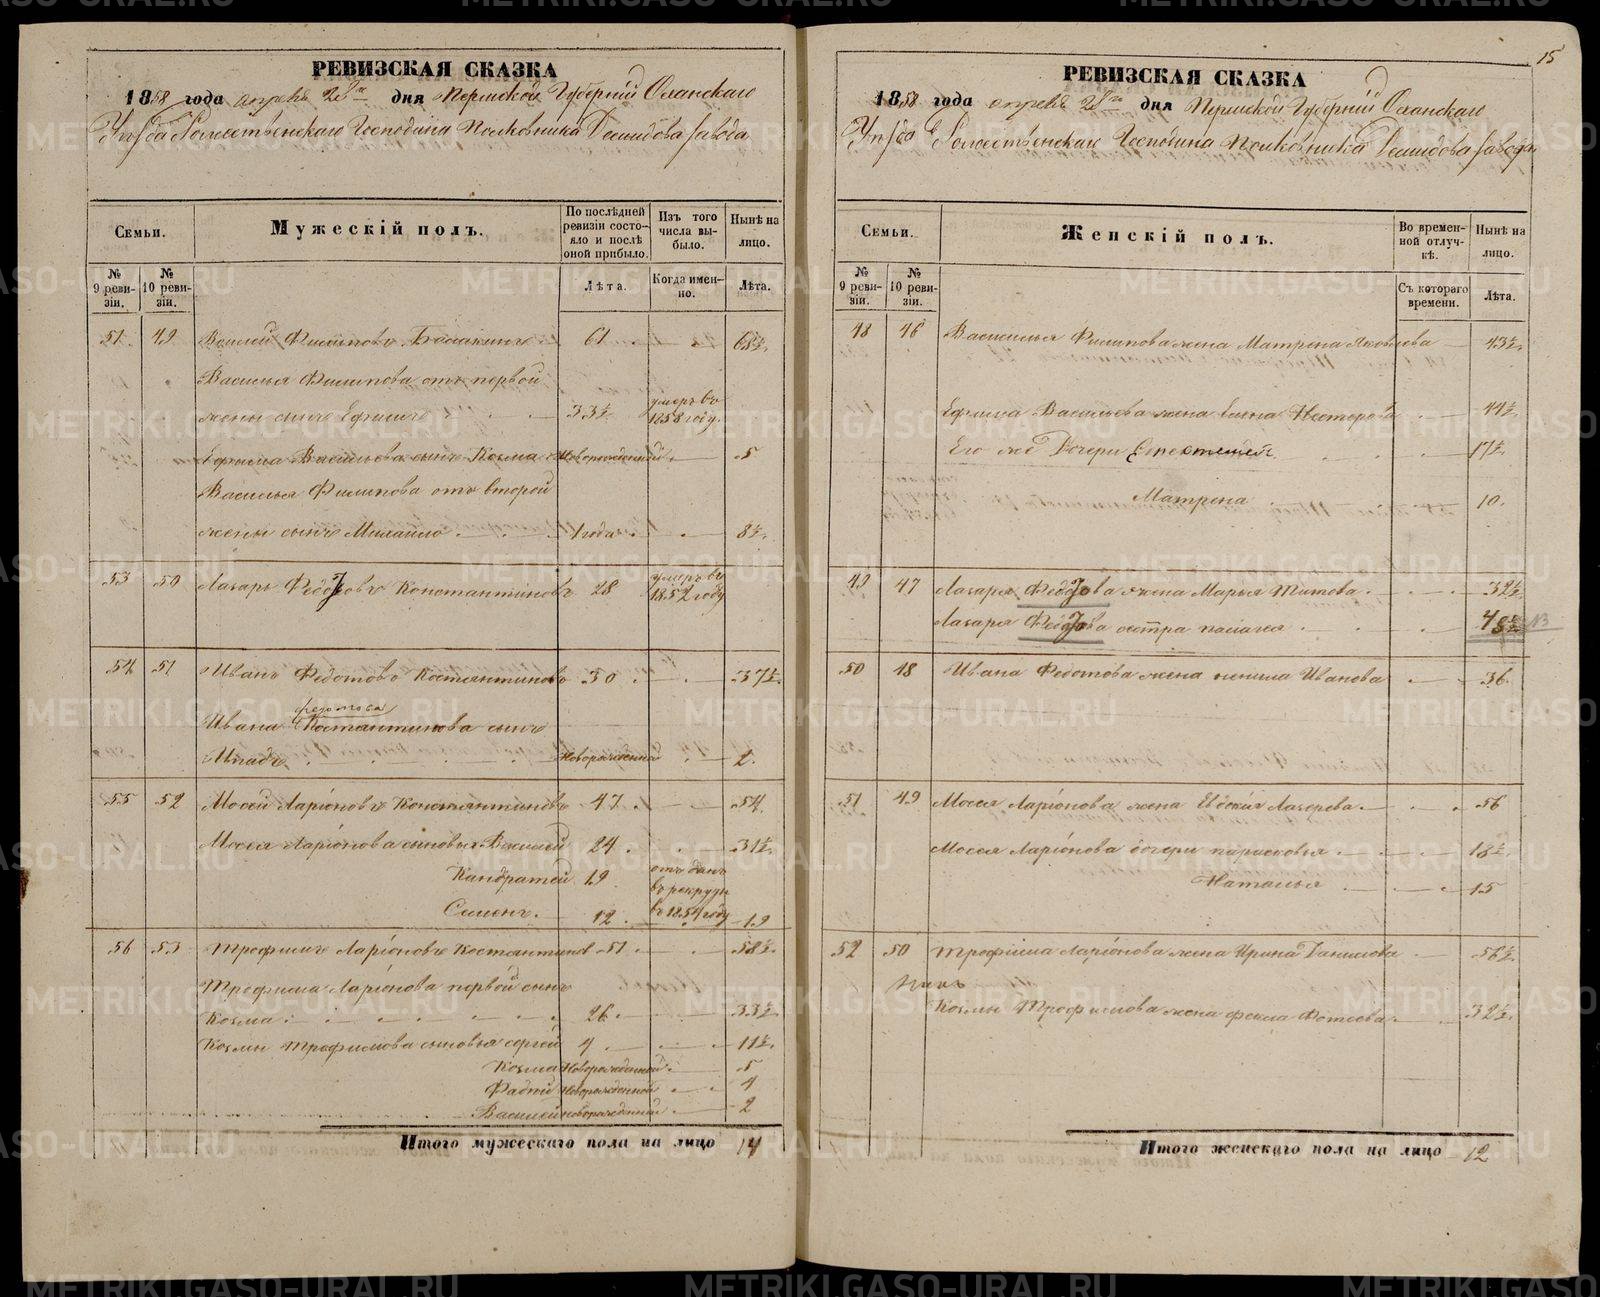 РЕВИЗСКАЯ СКАЗКА
1858 года апреля 28го дня Пермской Губернiй Осинскаго
Уѣзда Рожественскаго Господина Полковника Демидова завода
Семьи.
Мужескiй полъ.
По послѣдней ревизiи состояло и послѣ оной прибыло.
Изъ того числа выбыло.
Нынѣ на лицо.
№ 9 ревизiи.
№ 10 ревизiи.
Лѣта.
Когда именно.
Лѣта.
51. 49 Василей Филиповъ Балакинъ 61 68½
Василья Филипова отъ первой
жены сынъ Ефимъ 33½ умеръ въ 1858 году.
Ефима Васильева сынъ Козма Новорожденный 5
Василья Филипова отъ второй
жены сынъ Михайло 1 года 8½
53 50 Лазарь Федотовъ Константиновъ 28 умеръ въ 1852 году
54 51 Иванъ Федотовъ Костянтиновъ 30 37½
федотова
Ивана Костантинова сынъ
Новорожденный 2.
55 52 Мосей Ларiоновъ Константиновъ 47 54
Мосея Ларiонова сыновья Василей 24 31½
Кандратей 19 отъ данъ въ рекруты въ 1854 году
Семенъ. 12 19
56 53 Трофимъ Ларiоновъ Костянтинов 51 58½
Трофима Ларiонова первой сынъ
Козма 26 33½
Козмы Трофимова сыновья сергей 4 11½
Козма Новорожденной 5
Новорожденной 4
Василей новорожденный 2
Итого мужескаго пола на лицо 14
15
РЕВИЗСКАЯ СКАЗКА
1858 года апреля 28го дня Пермской Губернiй Осинскаго
Уѣзда Рожественскаго Господина Полковника Демидова завода
Семьи.
Женскiй полъ.
Во временной отлучкѣ.
Нынѣ на лицо.
№ 9 ревизiи.
№ 10 ревизiи.
Съ котораго времени.
Лѣта.
48 46 Василья Филипова жена Матрена Яковлева 43½
Ефима Васильева жена Нестерова 44½
Его же Дочери 17½
Матрена 10.
49 47 Лазаря Федотова жена Марья Титова 32½
Лазаря Федотова сестра палагея
50 48 Ивана Федотова жена Иванова 36
51 49 Мосея Ларiонова жена Евдокия Лазерева 56
Мосея Ларiонова дочери парасковья 18½
Наталья 15
52 50 Трофима Ларiонова жена Ирина Данилова 56½
Козмы Трофимова жена фекла Фотеева 32½
Итого женскаго пола на лицо 12
METRIKI.GASO-URAL.RU